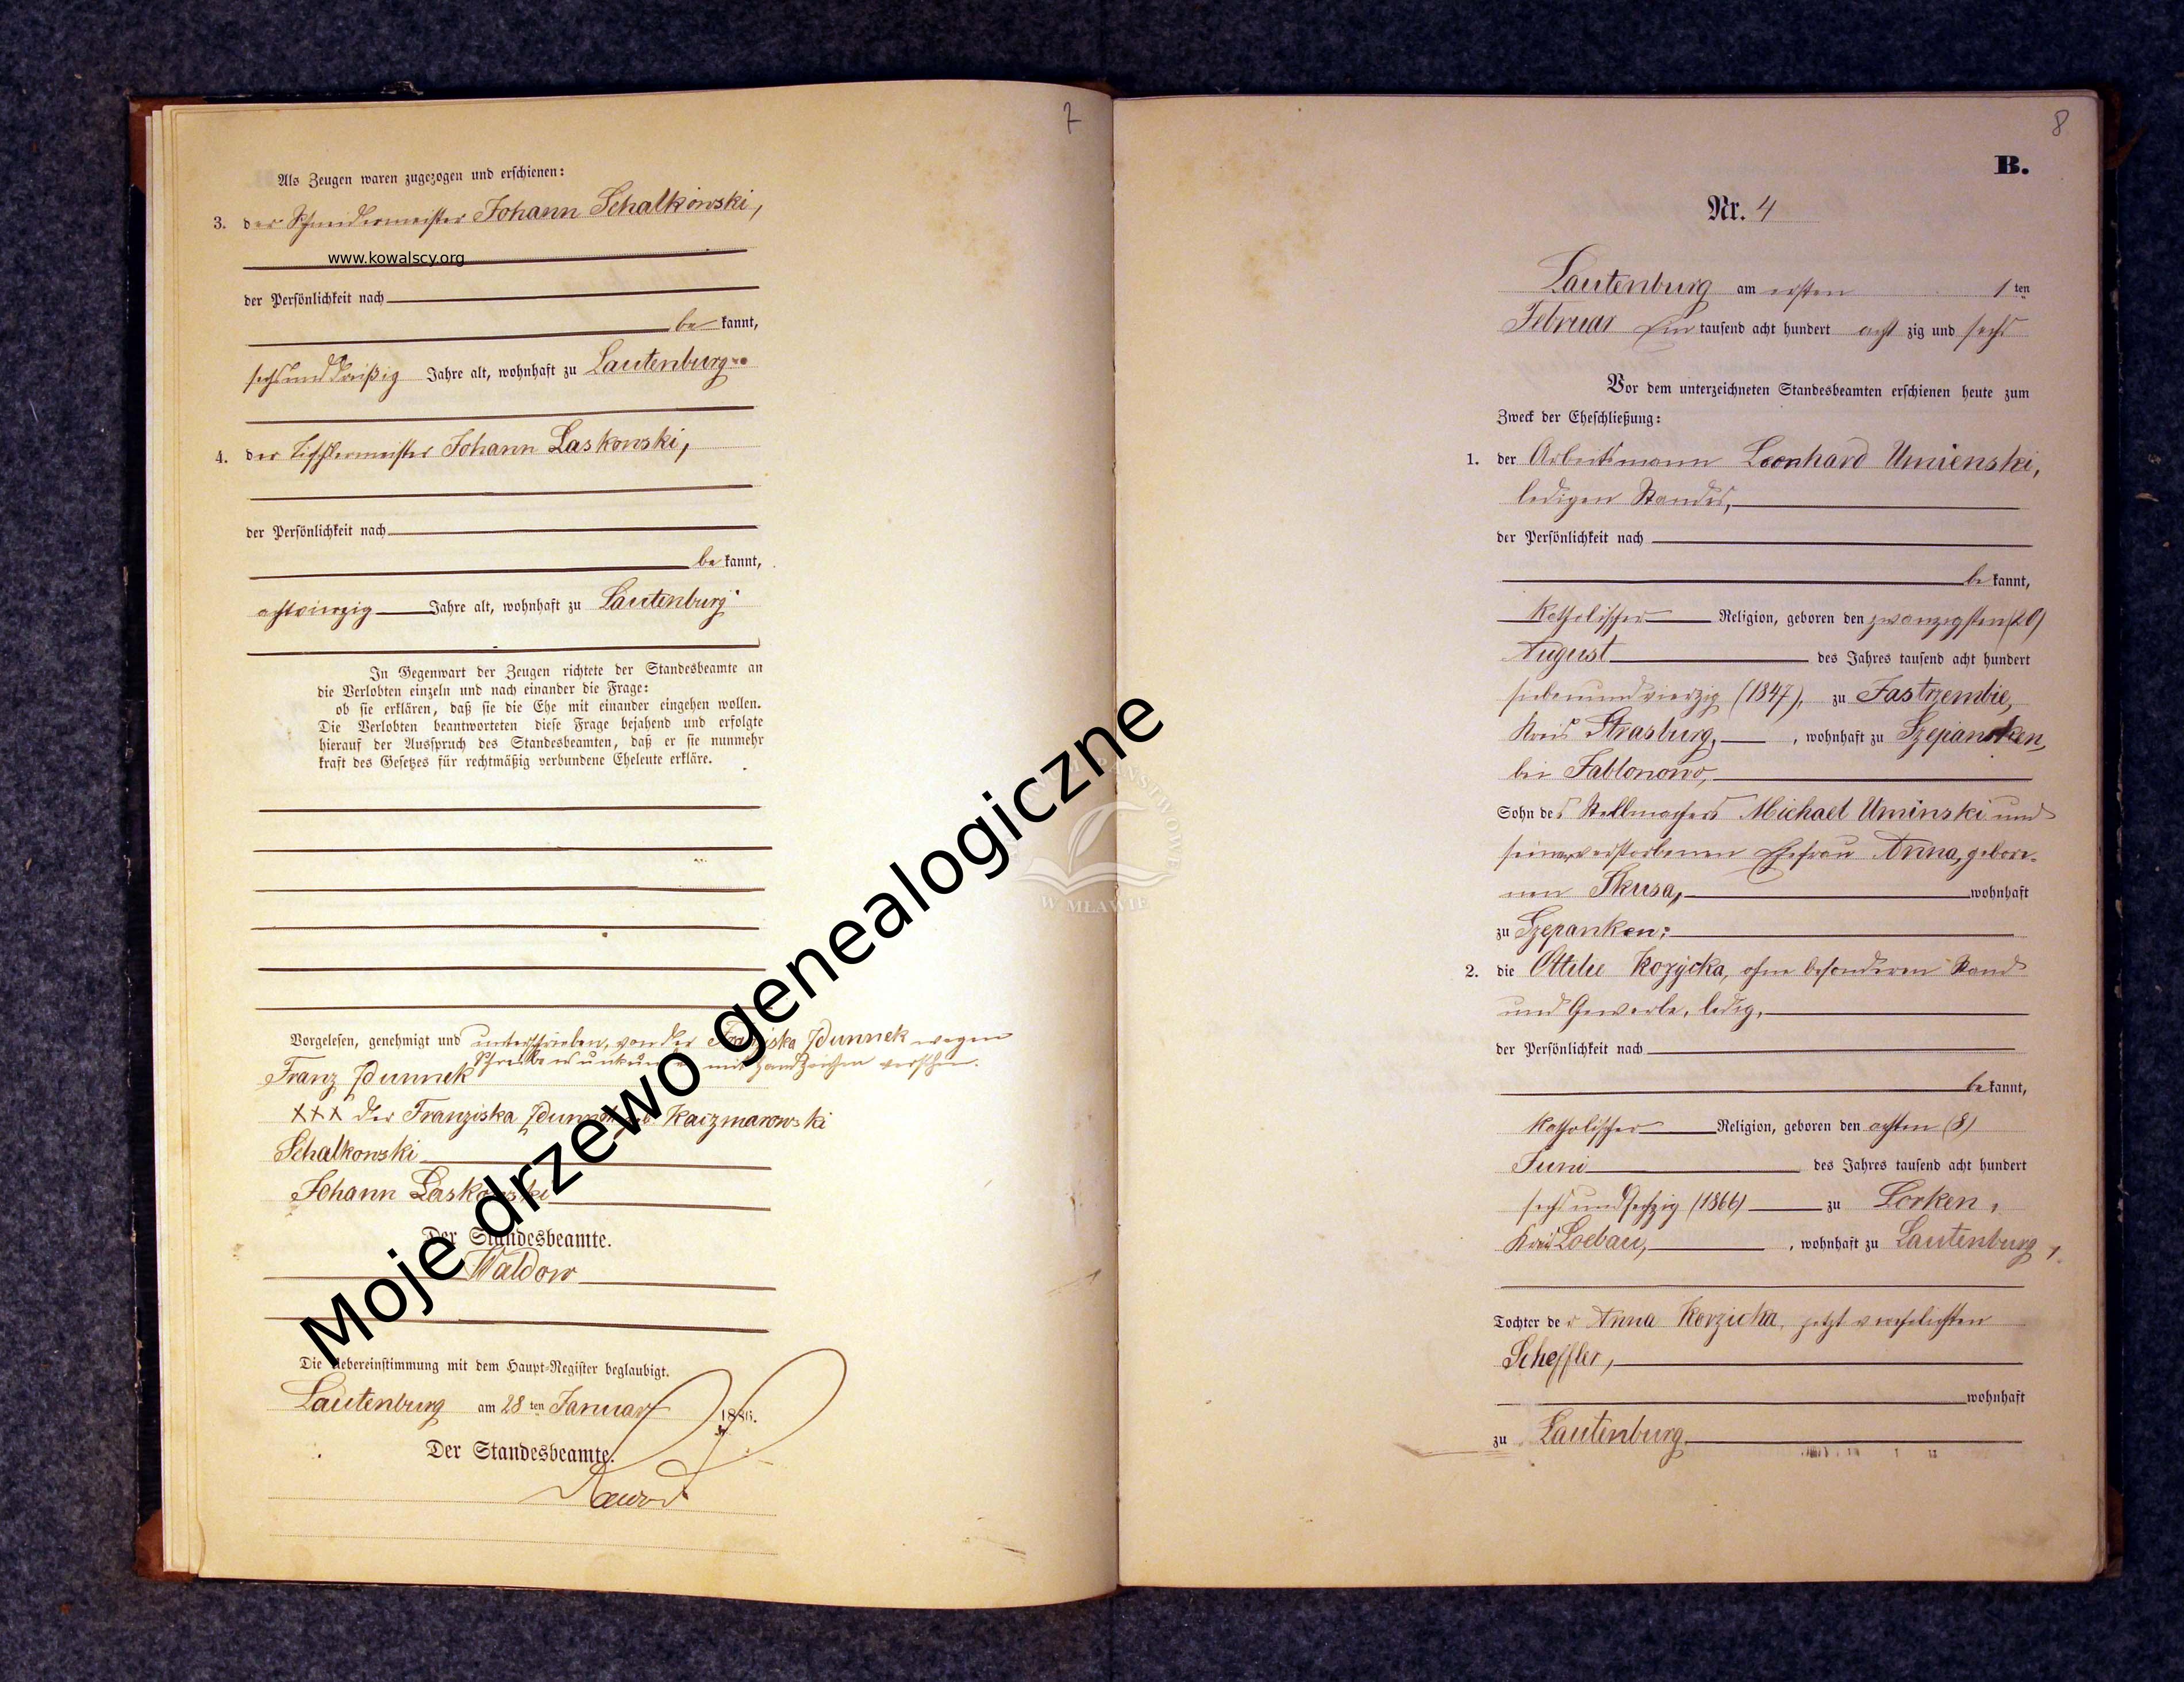 7
Als Zeugen waren zugezogen und erschienen:
3. der Schneidermeister Johann Schalkowski,
www.kowalscy.org
der Persönlichkeit nach
be kannt,
sechsunddreißig Jahre alt, wohnhaft zu Lautenburg
4. der Tischlermeister Johann Laskowski,
der Persönlichkeit nach
be kannt,
achtvierzig Jahre alt, wohnhaft zu Lautenburg
In Gegenwart der Zeugen richtete der Standesbeamte an
die Verlobten einzeln und nach einander die Frage:
ob sie erklären, daß sie die Ehe mit einander eingehen wollen.
Die Verlobten beantworteten diese Frage bejahend und erfolgte
hierauf der Ausspruch des Standesbeamten, daß er sie nunmehr
kraft des Gesetzes für rechtmäßig verbundene Eheleute erkläre.
Vorgelesen, genehmigt und unterschrieben, von der Franziska wegen
mit Handzeichen versehen.
Franz
XXX der Franziska Kaczmarowski
Schalkowski
Johann Laskowski
Der Standesbeamte.
Waldow
Die Uebereinstimmung mit dem Haupt-Register beglaubigt.
Lautenburg am 28 ten Januar 1886.
Der Standesbeamte.
Moje drzewo genealogiczne
W MŁAWIE
8
B.
Nr. 4
Lautenburg am ersten 1 ten
Februar Ein tausend acht hundert acht zig und sechs
Vor dem unterzeichneten Standesbeamten erschienen heute zum
Zweck der Eheschließung:
1. der Arbeitsmann Leonhard Umienski,
ledigen Standes,
der Persönlichkeit nach
be kannt,
katholischer Religion, geboren den zwanzigsten (20)
August des Jahres tausend acht hundert
siebenundvierzig (1847), zu Jastrzembie,
Kreis Strasburg, , wohnhaft zu Szepansken,
bei Jablonowo,
Sohn des Stellmachers Michael Uminski und
seiner verstorbenen Ehefrau Anna, gebore-
nen Skusa, wohnhaft
zu Szepanken;
2. die Ottilie Kozycka, ohne besonderen Stand
und Gewerbe, ledig,
der Persönlichkeit nach
be kannt,
katholischer Religion, geboren den achten (8)
Juni des Jahres tausend acht hundert
sechsundsechzig (1866) zu Lorken,
Kreis Loebau, , wohnhaft zu Lautenburg,
Tochter der Anna Korzicka, jetzt verehelichten
Scheffler,
wohnhaft
zu Lautenburg